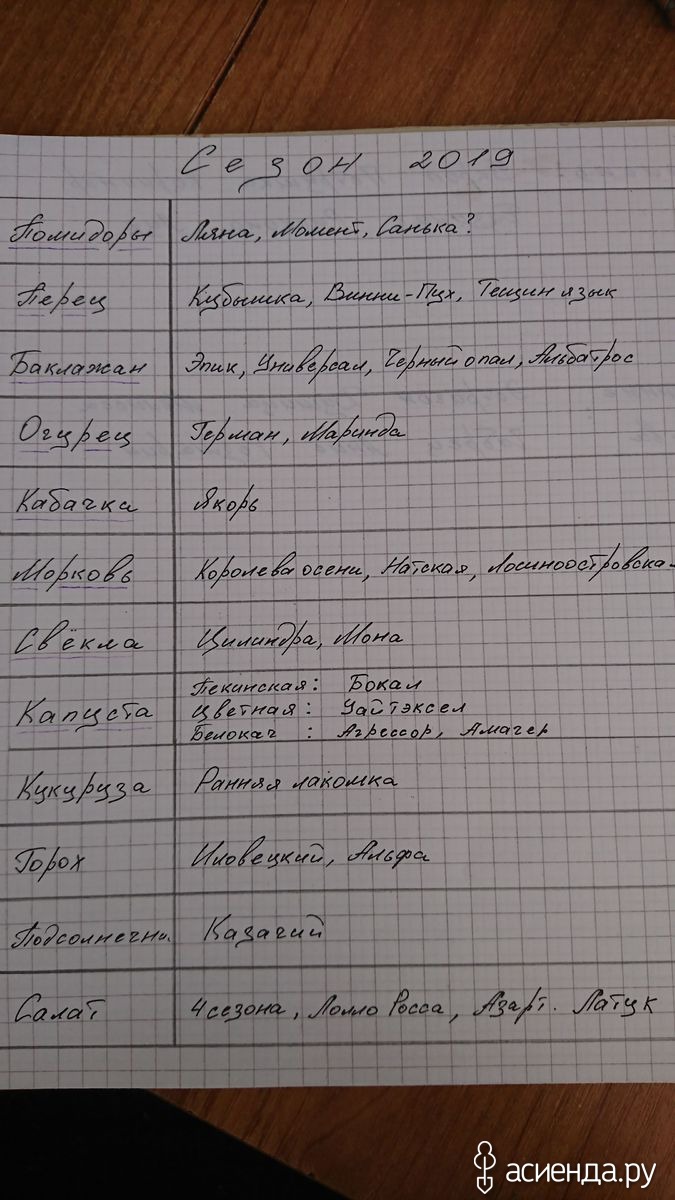 Сезон 2019
Помидоры Ляна, Момент, Санька?
Перец Кубышка, Винни-Пух, Тещин язык
Баклажан Эпик, Универсал, Черный опал, Альбатрос
Огурец Герман, Маринда
Кабачка Якорь
Морковь Королева осени, Натская, Лосиноостровска
Свёкла Цилиндра, Мона
Капуста Пекинская: Бокал
Цветная: Уайтэксел
Белокач: Агрессор, Амагер
Кукуруза Ранняя лакомка
Горох Иловецкий, Альфа
Подсолнечни. Казачий
Салат 4 сезона, Лолло Росса, Азарт. Латук
асиенда.ру